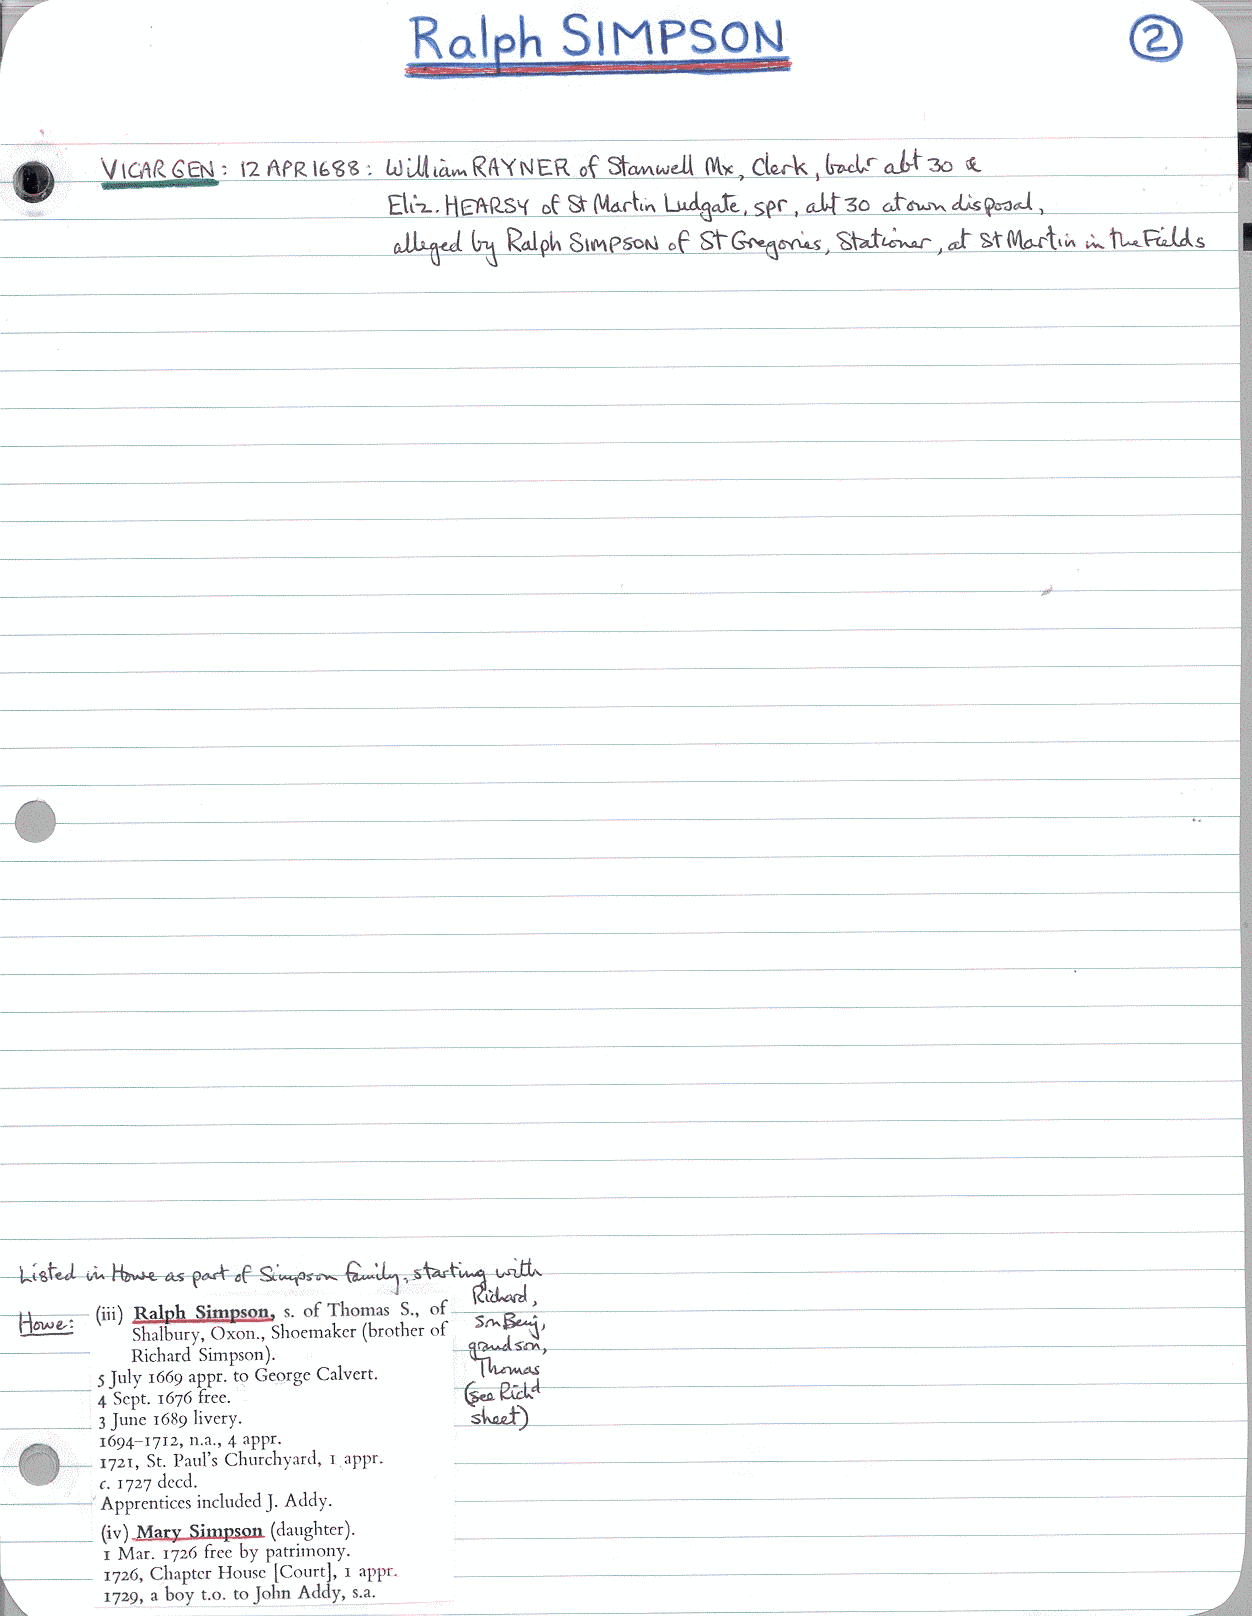 Ralph SIMPSON
2
VICAR GEN: 12 APR 1688: William RAYNER of Stanwell Mx, Clerk, bachr abt 30 &
Eliz. HEARSY of St Martin Ludgate, spr, abt 30 at own disposal,
alleged by Ralph SIMPSON of St Gregories, Stationer, at St Martin in the Fields
Listed in Howe as part of Simpson family, starting with
Richard,
son Benj,
grandson,
Thomas
(see Richd
sheet)
Howe:
(iii) Ralph Simpson, s. of Thomas S., of
Shalbury, Oxon., Shoemaker (brother of
Richard Simpson).
5 July 1669 appr. to George Calvert.
4 Sept. 1676 free.
3 June 1689 livery.
1694–1712, n.a., 4 appr.
1721, St. Paul's Churchyard, 1 appr.
c. 1727 decd.
Apprentices included J. Addy.
(iv) Mary Simpson (daughter).
1 Mar. 1726 free by patrimony.
1726, Chapter House [Court], 1 appr.
1729, a boy t.o. to John Addy, s.a.